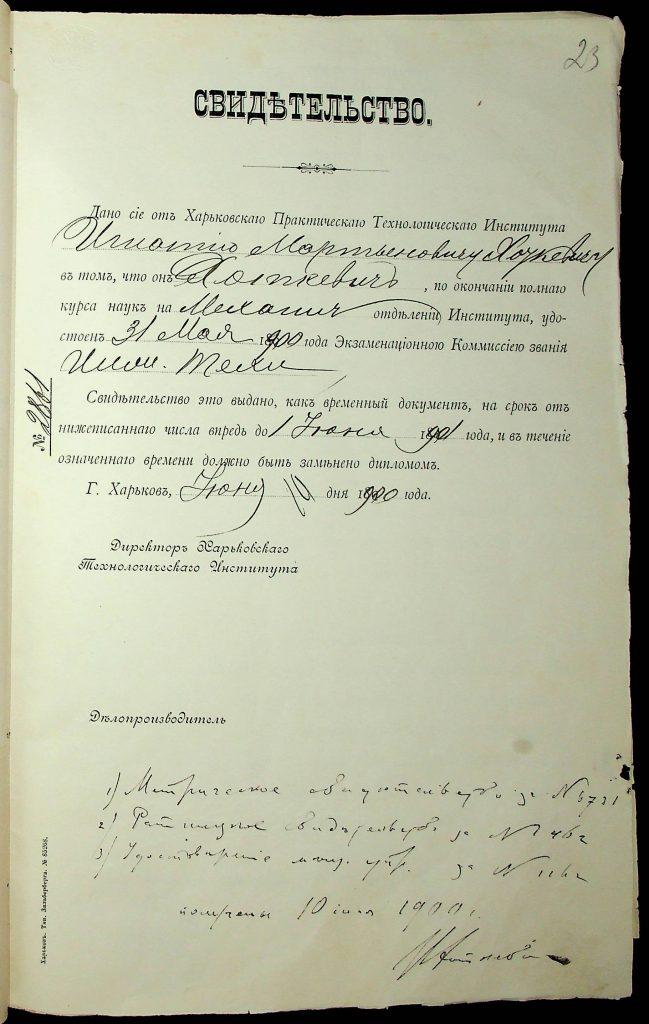 23
СВИДѢТЕЛЬСТВО.
Дано сіе отъ Харьковскаго Практическаго Технологическаго Института
Игнатію Мартыновичу Хоткевичу
въ томъ, что онъ Хоткевичъ, по окончаніи полнаго
курса наукъ на Механич отдѣленіи Института, удо-
стоенъ 31 Мая 1900 года Экзаменаціонною Коммиссіею званія
Инж. Техн
Свидѣтельство это выдано, какъ временный документъ, на срокъ отъ
нижеписаннаго числа впредь до 1 Іюня 1901 года, и въ теченіе
означеннаго времени должно быть замѣнено дипломомъ.
Г. Харьковъ, Іюня 10 дня 1900 года.
№ 2861
Директоръ Харьковскаго
Технологическаго Института
Дѣлопроизводитель
1) Метрическое свидѣтельство за №
2) свидѣтельство за №
3) Удостовѣреніе за №
получены 10 іюня 1900 г.
Харьковъ. Тип. Зильберберга. №